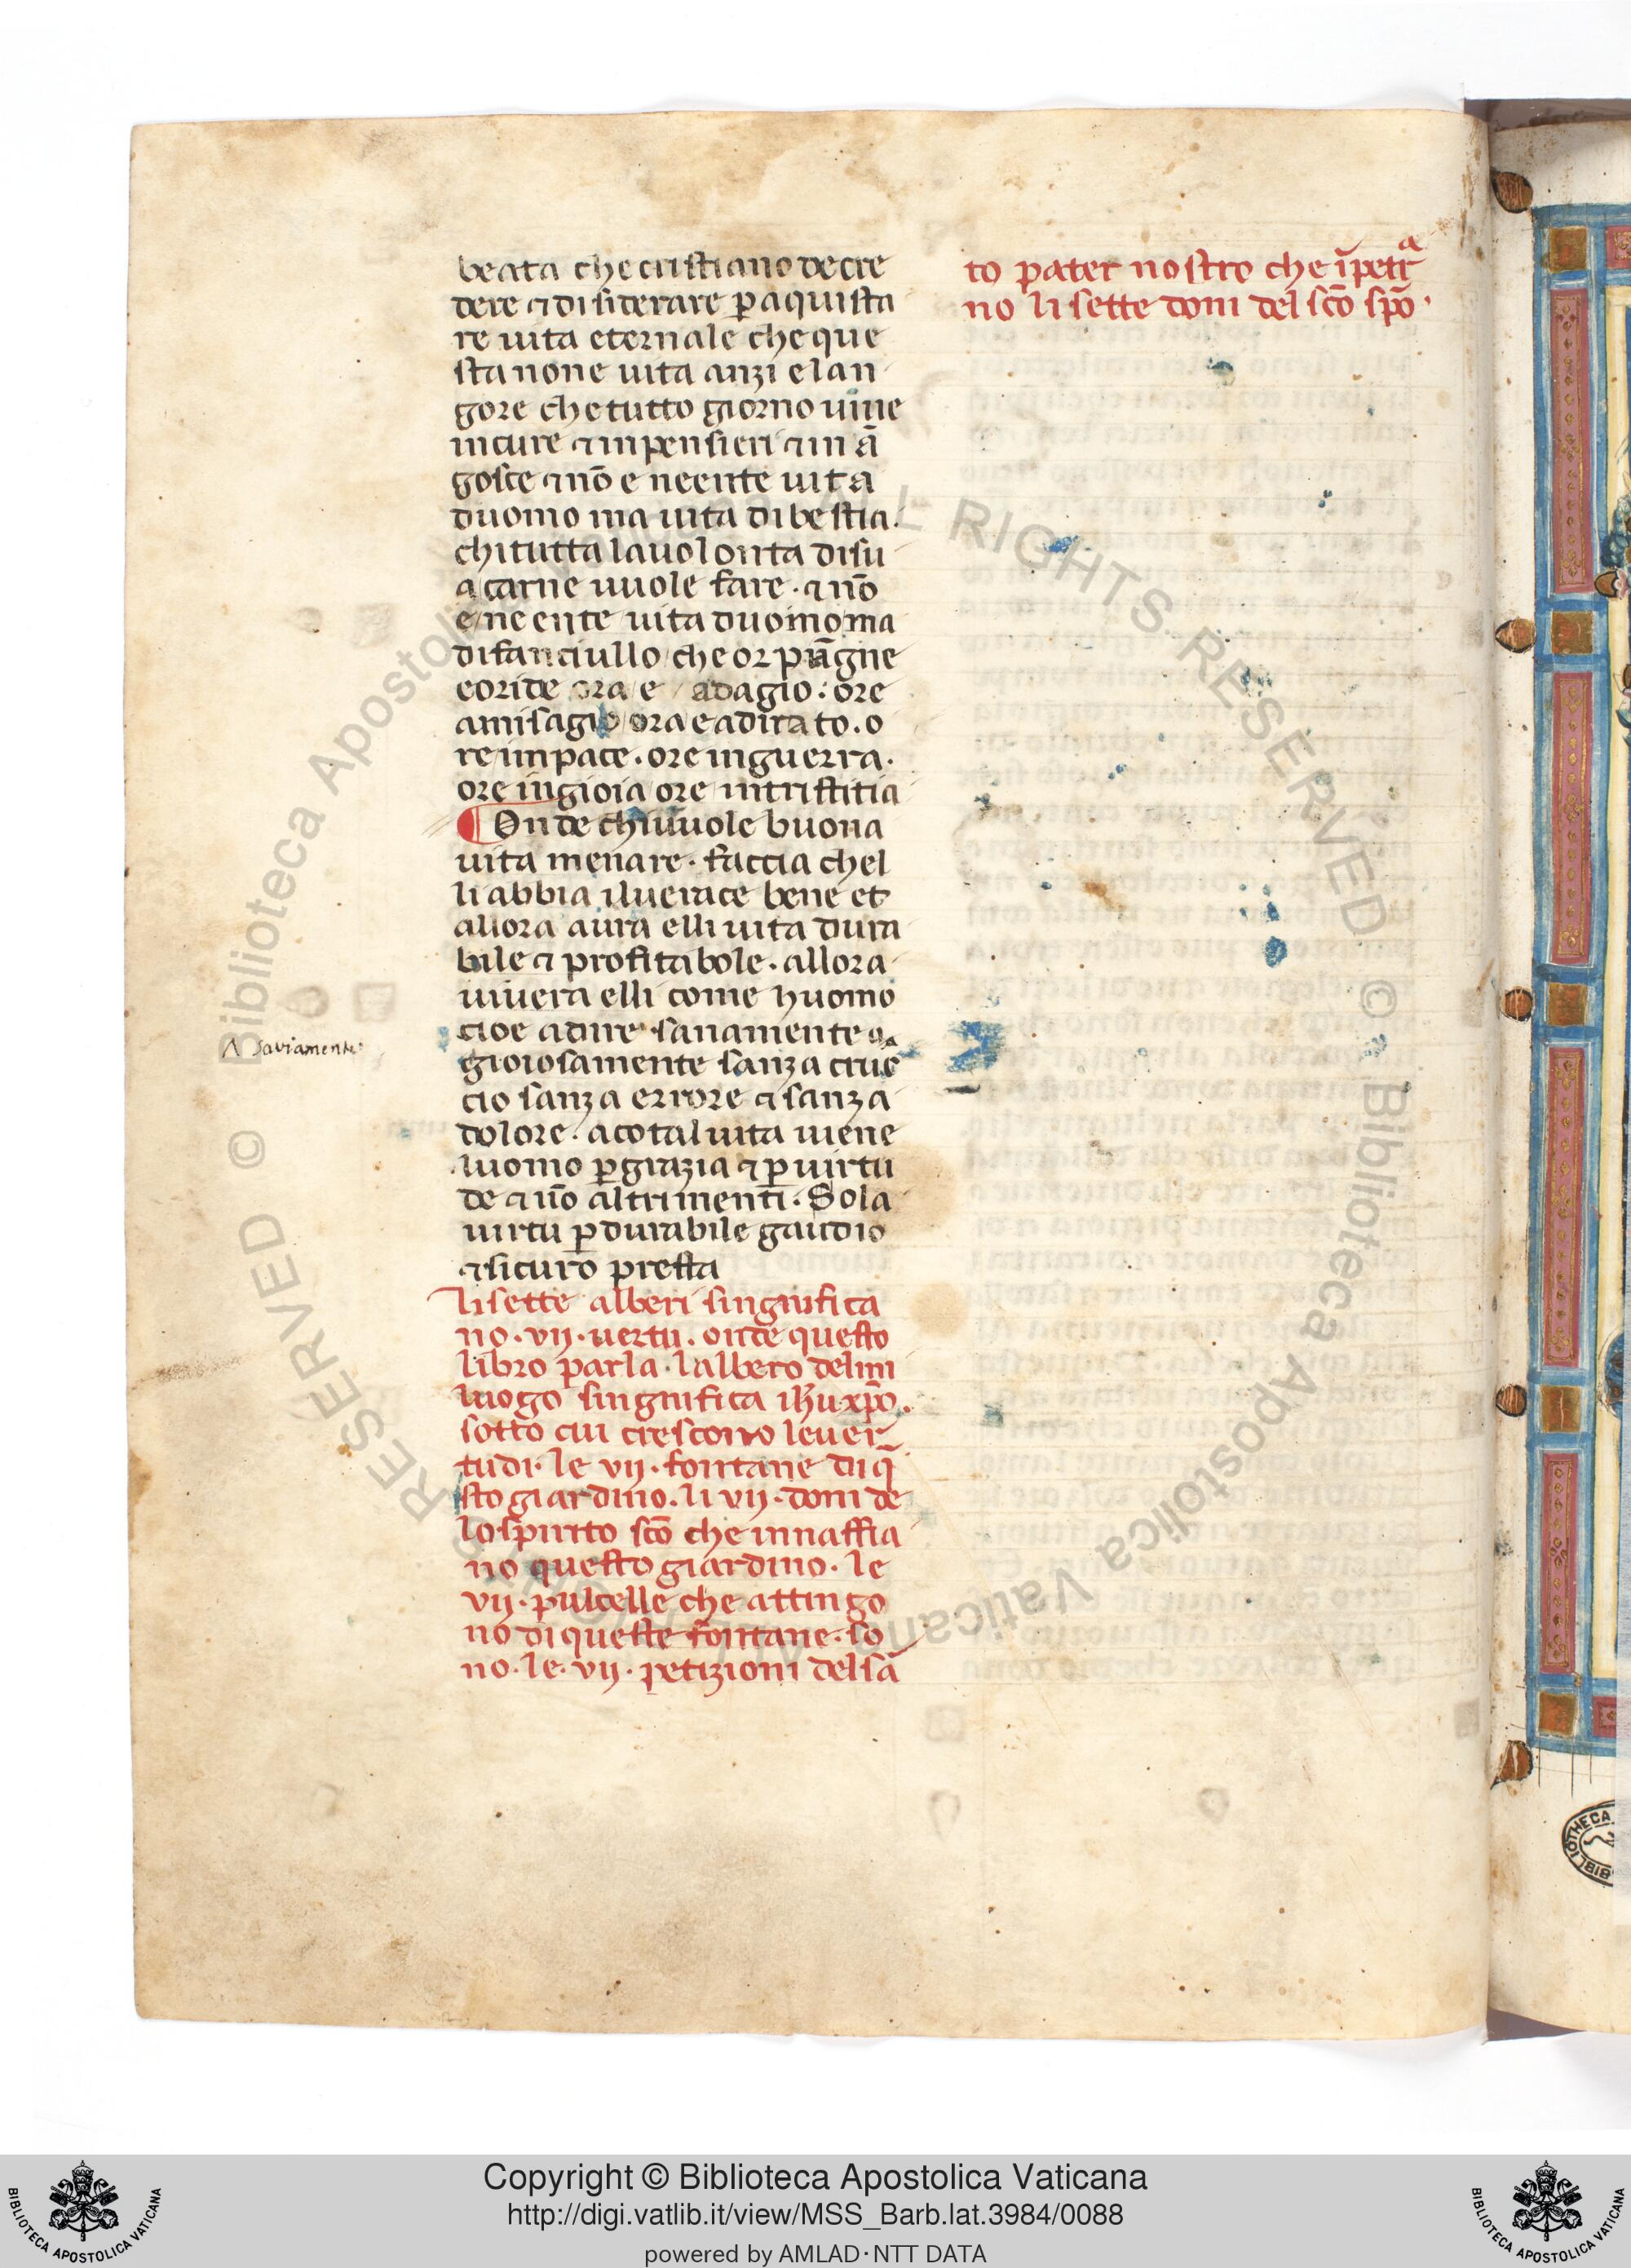 beata che cristiano de cre
dere ⁊ disiderare ꝑ aquista
re uita eternale che que
sta none uita anzi e lan
gore che tutto giorno uiue
in cure ⁊ inpensieri ⁊ in ā
gosce ⁊ nō e neente uita
duomo ma uita di bestia.
chi tutta la uolonta di su
a carne uuole fare · ⁊ nō
e neente uita duomo ma
di fanciullo che or piāgne
e or ide ora e adagio : ore
a misagio ora e adirato . o
re in pace . ore in guerra .
ore in gioia ore in tristitia
¶ Onde chi uuole buona
uita menare · faccia chel
li abbia il uerace bene et
allora aura elli uita dura
bile ⁊ profitabole · allora
uiuera elli come huomo
cioe a dire · sanamente
Λ saviamente
gioiosamente sanza cruc
cio sanza errore ⁊ sanza
dolore · a cotal uita uiene
luomo ꝑ grazia ⁊ ꝑ uirtu
de ⁊ nō altrimenti · Sola
uirtu ꝑdurabile gaudio
⁊ sicuro presta
li sette alberi singnifica
no · vij · uertu . onde questo
libro parla · lalbero del mi
luogo singnifica ihū xp̄o .
sotto cui crescono le uer
tudi · le vij · fontane di q̄
sto giardino . li vij · doni de
lo spirito sc̄o che innaffia
no questo giardino · le
vij · pulcelle che attingo
no di queste fontane · so
no · le · vij · petizioni del sā
to pater nostro che īpetra
no li sette doni del sc̄o sp̄o ·
RIGHTS RESERVED © Biblioteca Apostolica Vaticana
RESERVED © Biblioteca Apostolica
BIBLIOTHECA
Copyright © Biblioteca Apostolica Vaticana
http://digi.vatlib.it/view/MSS_Barb.lat.3984/0088
powered by AMLAD·NTT DATA
BIBLIOTECA APOSTOLICA VATICANA
BIBLIOTECA APOSTOLICA VATICANA